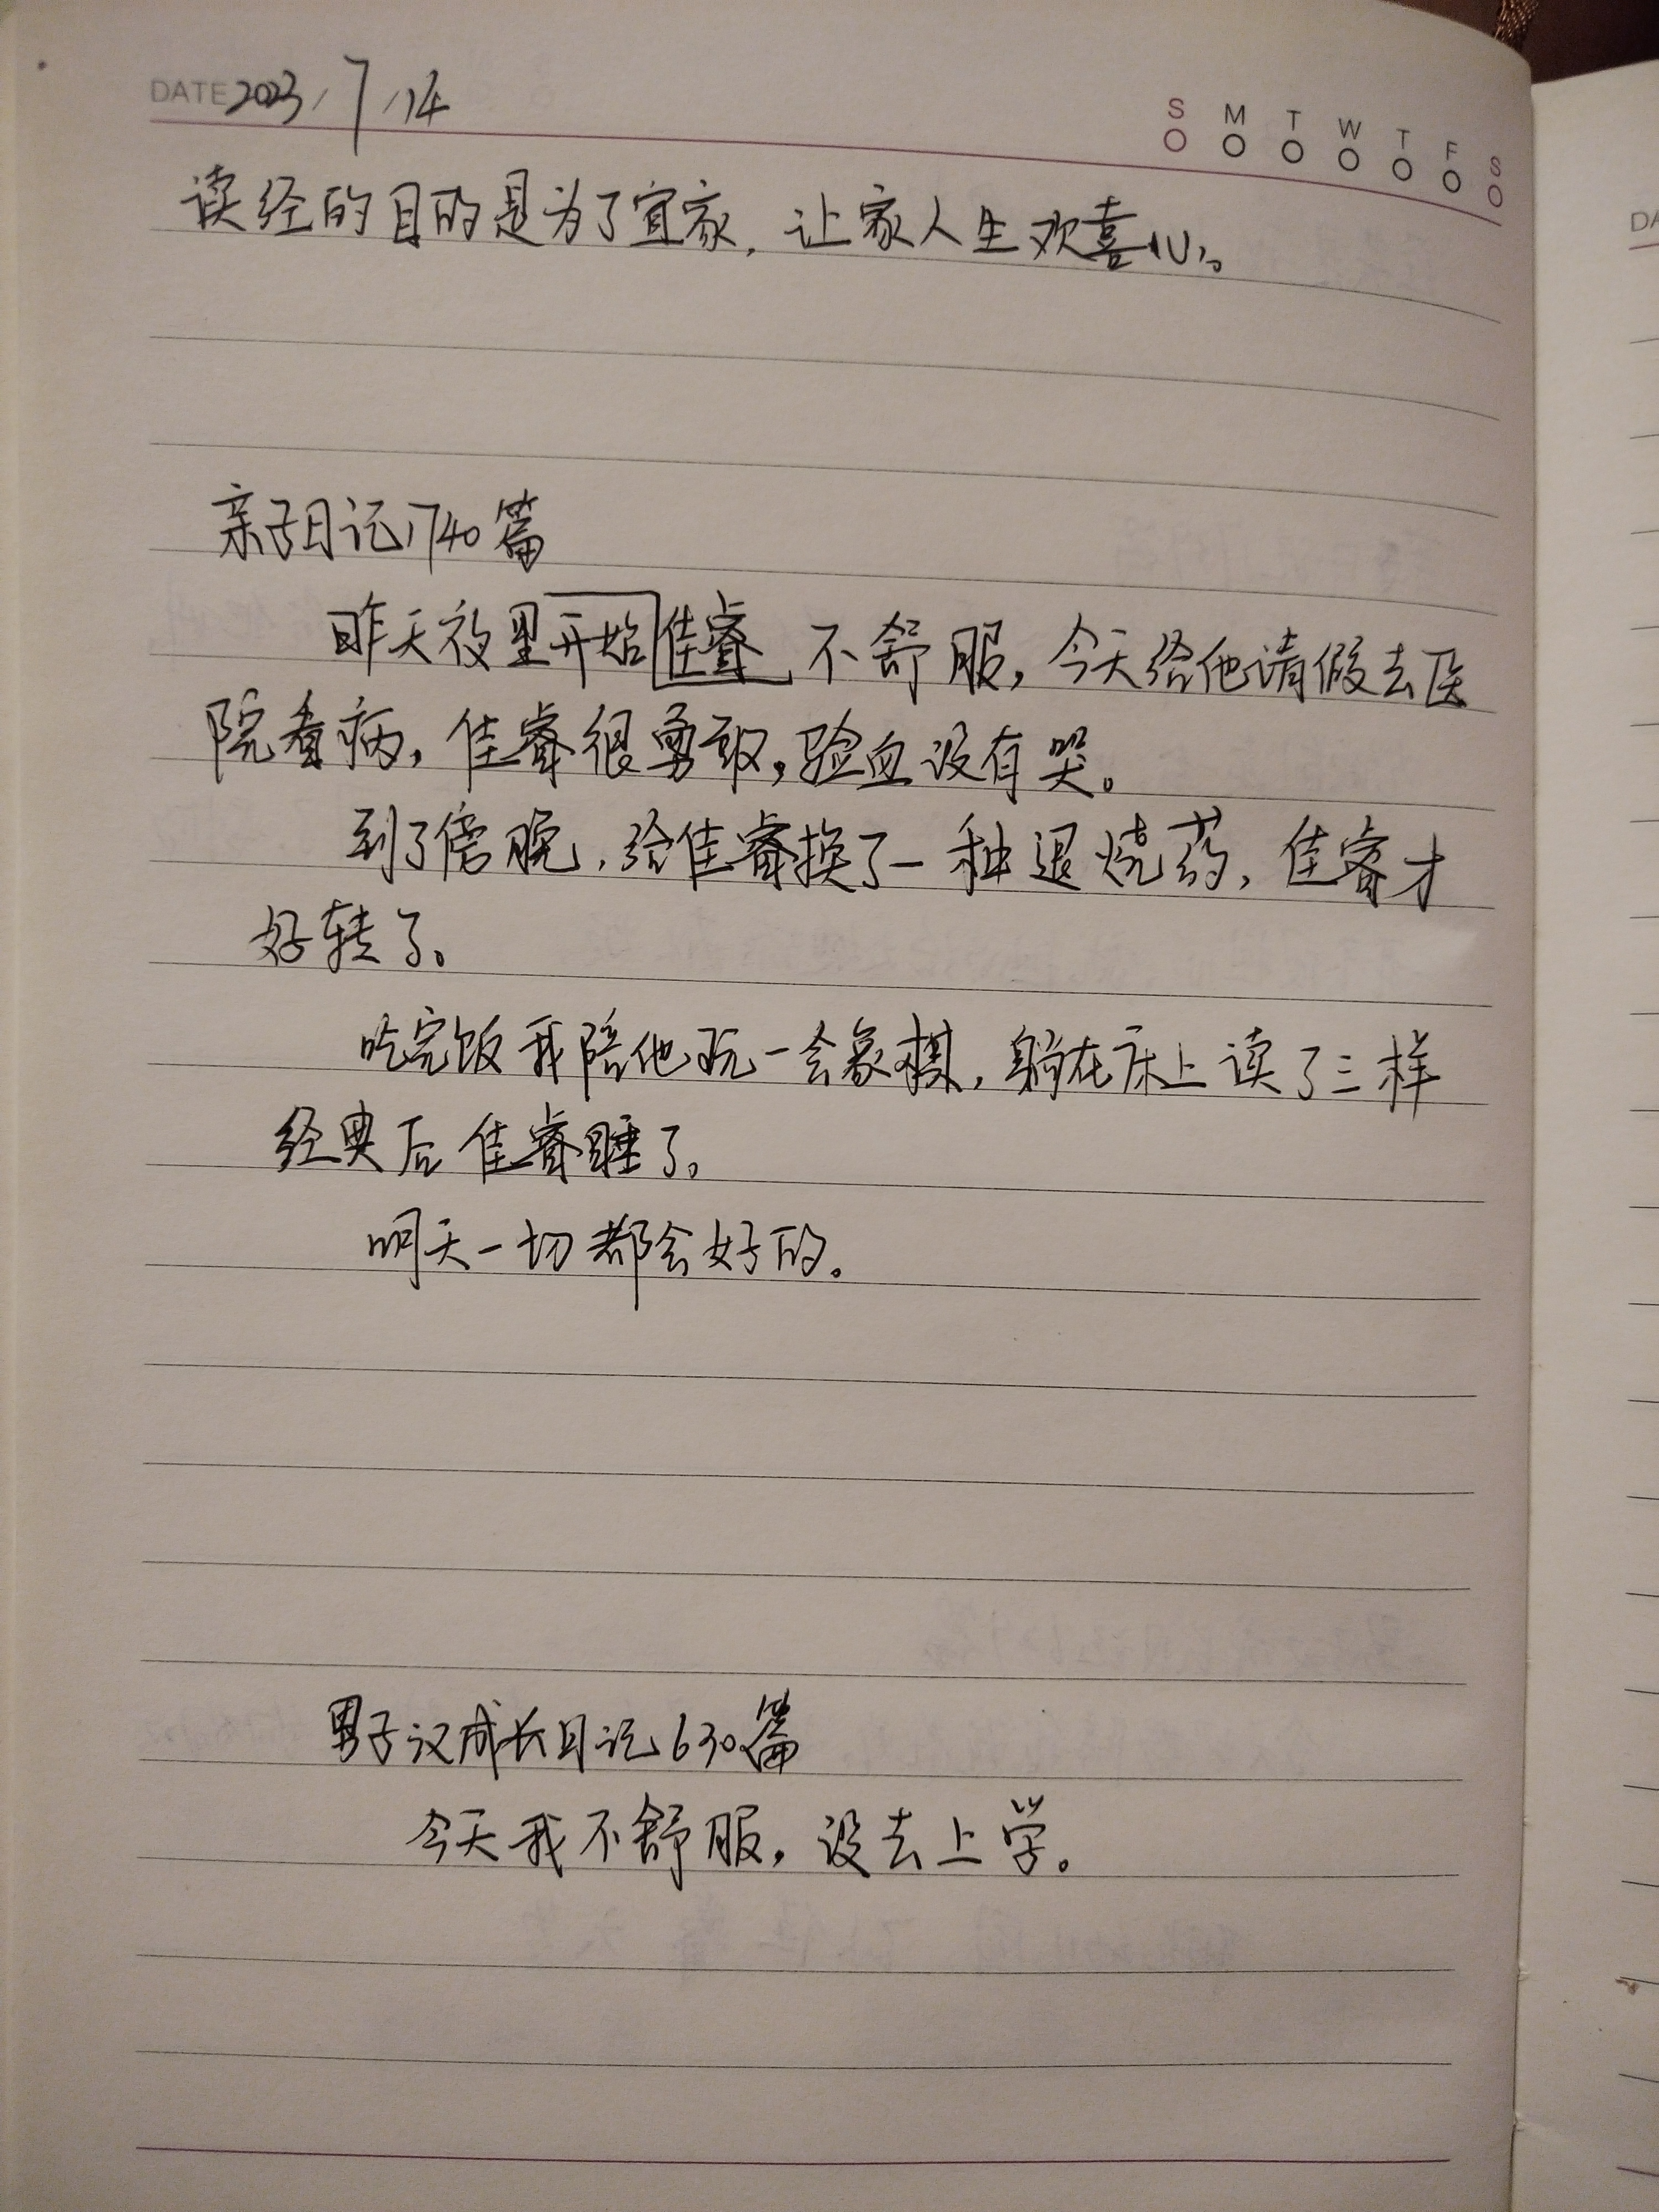 DATE 2023/7/14
S M T W T F S
读经的目的是为了宜家，让家人生欢喜心。
亲子日记1740篇
昨天夜里开始佳睿不舒服，今天给他请假去医
院看病，佳睿很勇敢，验血没有哭。
到了傍晚，给佳睿换了一种退烧药，佳睿才
好转了。
吃完饭我陪他玩一会象棋，躺在床上读了三样
经典后佳睿睡了。
明天一切都会好的。
男子汉成长日记630篇
今天我不舒服，没去上学。
DA